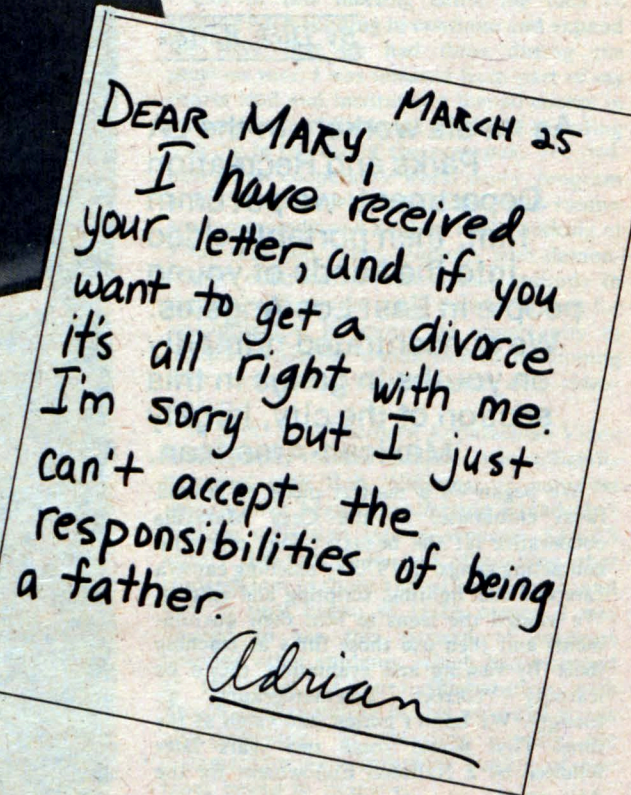 MARCH 25
DEAR MARY,
I have received
your letter, and if you
want to get a divorce
it's all right with me.
I'm sorry but I just
can't accept the
responsibilities of being
a father.
Adrian